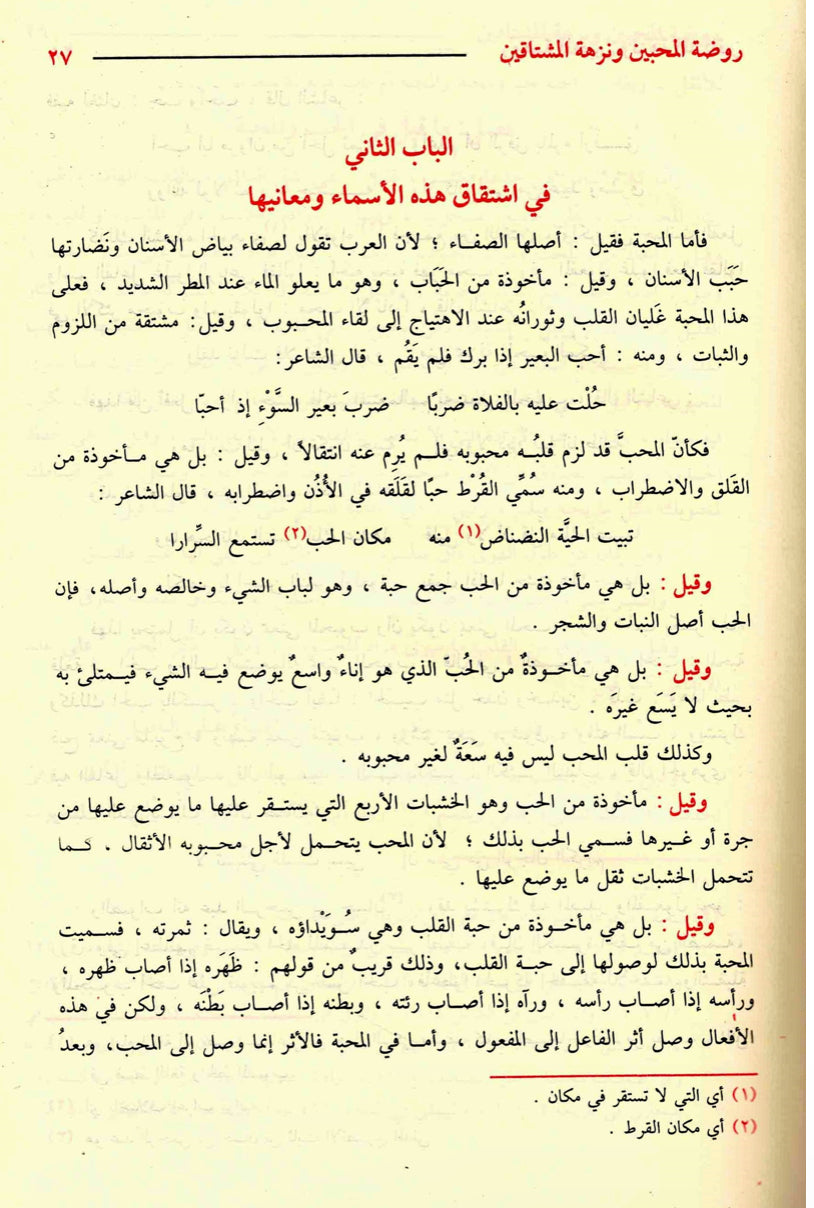 روضة المحبين ونزهة المشتاقين ٢٧
الباب الثاني
في اشتقاق هذه الأسماء ومعانيها
فأما المحبة فقيل : أصلها الصفـاء ؛ لأن العرب تقول لصفاء بياض الأسنان ونَضارتها
حَبَب الأسنان ، وقيل : مأخوذة من الحَبَاب ، وهو ما يعلو الماء عند المطر الشديد ، فعلى
هذا المحبة غَليان القلب وثورانُه عند الاهتياج إلى لقاء المحـبوب ، وقيل: مشتقة من اللزوم
والثبات ، ومنه : أحب البعير إذا برك فلم يَقُم ، قال الشاعر:
حُلْت عليه بالفلاة ضربًا ضربَ بعير السَّوْءِ إذ أحبّا
فكأنّ المحبَّ قد لزم قلبُـه محبوبه فلـم يُرِم عنه انتقالاً ، وقيل : بل هي مـأخوذة من
القَلق والاضطراب ، ومنه سُمِّي القُرْط حبًا لقَلَقه في الأُذُن واضطرابه ، قال الشاعر :
تبيت الحيَّة النضناض(١) منه مكان الحب(٢) تستمع السِّرارا
وقيل : بل هي مأخوذة من الحب جمع حبة ، وهو لباب الشيء وخالصه وأصله، فإن
الحب أصل النبات والشجر .
وقيل : بل هي مأخـوذةٌ من الحُبّ الذي هو إناءٌ واسعٌ يوضع فيـه الشيء فيـمتلئ به
بحيث لا يَسَع غيرَه .
وكذلك قلب المحب ليس فيه سَعَةٌ لغير محبوبه .
وقيل : مأخوذة من الحب وهو الخشبات الأربع التي يستـقر عليها ما يوضع عليها من
جرة أو غـيرها فسـمي الحب بذلك ؛ لأن المحب يتحـمل لأجل محـبوبه الأثقال . كـما
تتحمل الخشبات ثقل ما يوضع عليها .
وقيل : بل هي مأخـوذة من حبة القلب وهي سُـوَيْداؤه ، ويقال : ثمرته ، فسـميت
المحبة بذلك لوصولها إلى حبـة القلب، وذلك قريبٌ من قولهم : ظَهَره إذا أصاب ظهره ،
ورأسه إذا أصـاب رأسه ، ورآه إذا أصـاب رئته ، وبطنه إذا أصـاب بَطْنَه ، ولكن في هذه
الأفعال وصل أثر الفاعل إلى المفعول ، وأمـا في المحبة فالأثر إنما وصل إلى المحب، وبعدُ
(١) أي التي لا تستقر في مكان .
(٢) أي مكان القرط .